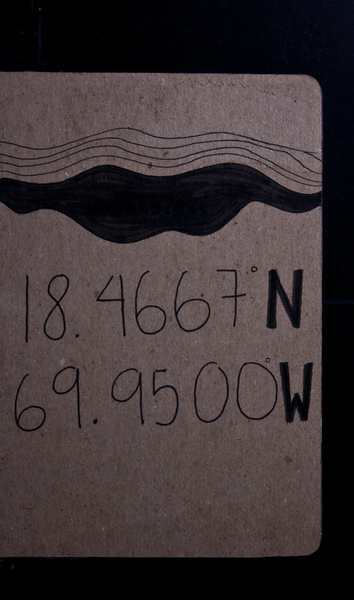 18.4667°N
69.9500°W